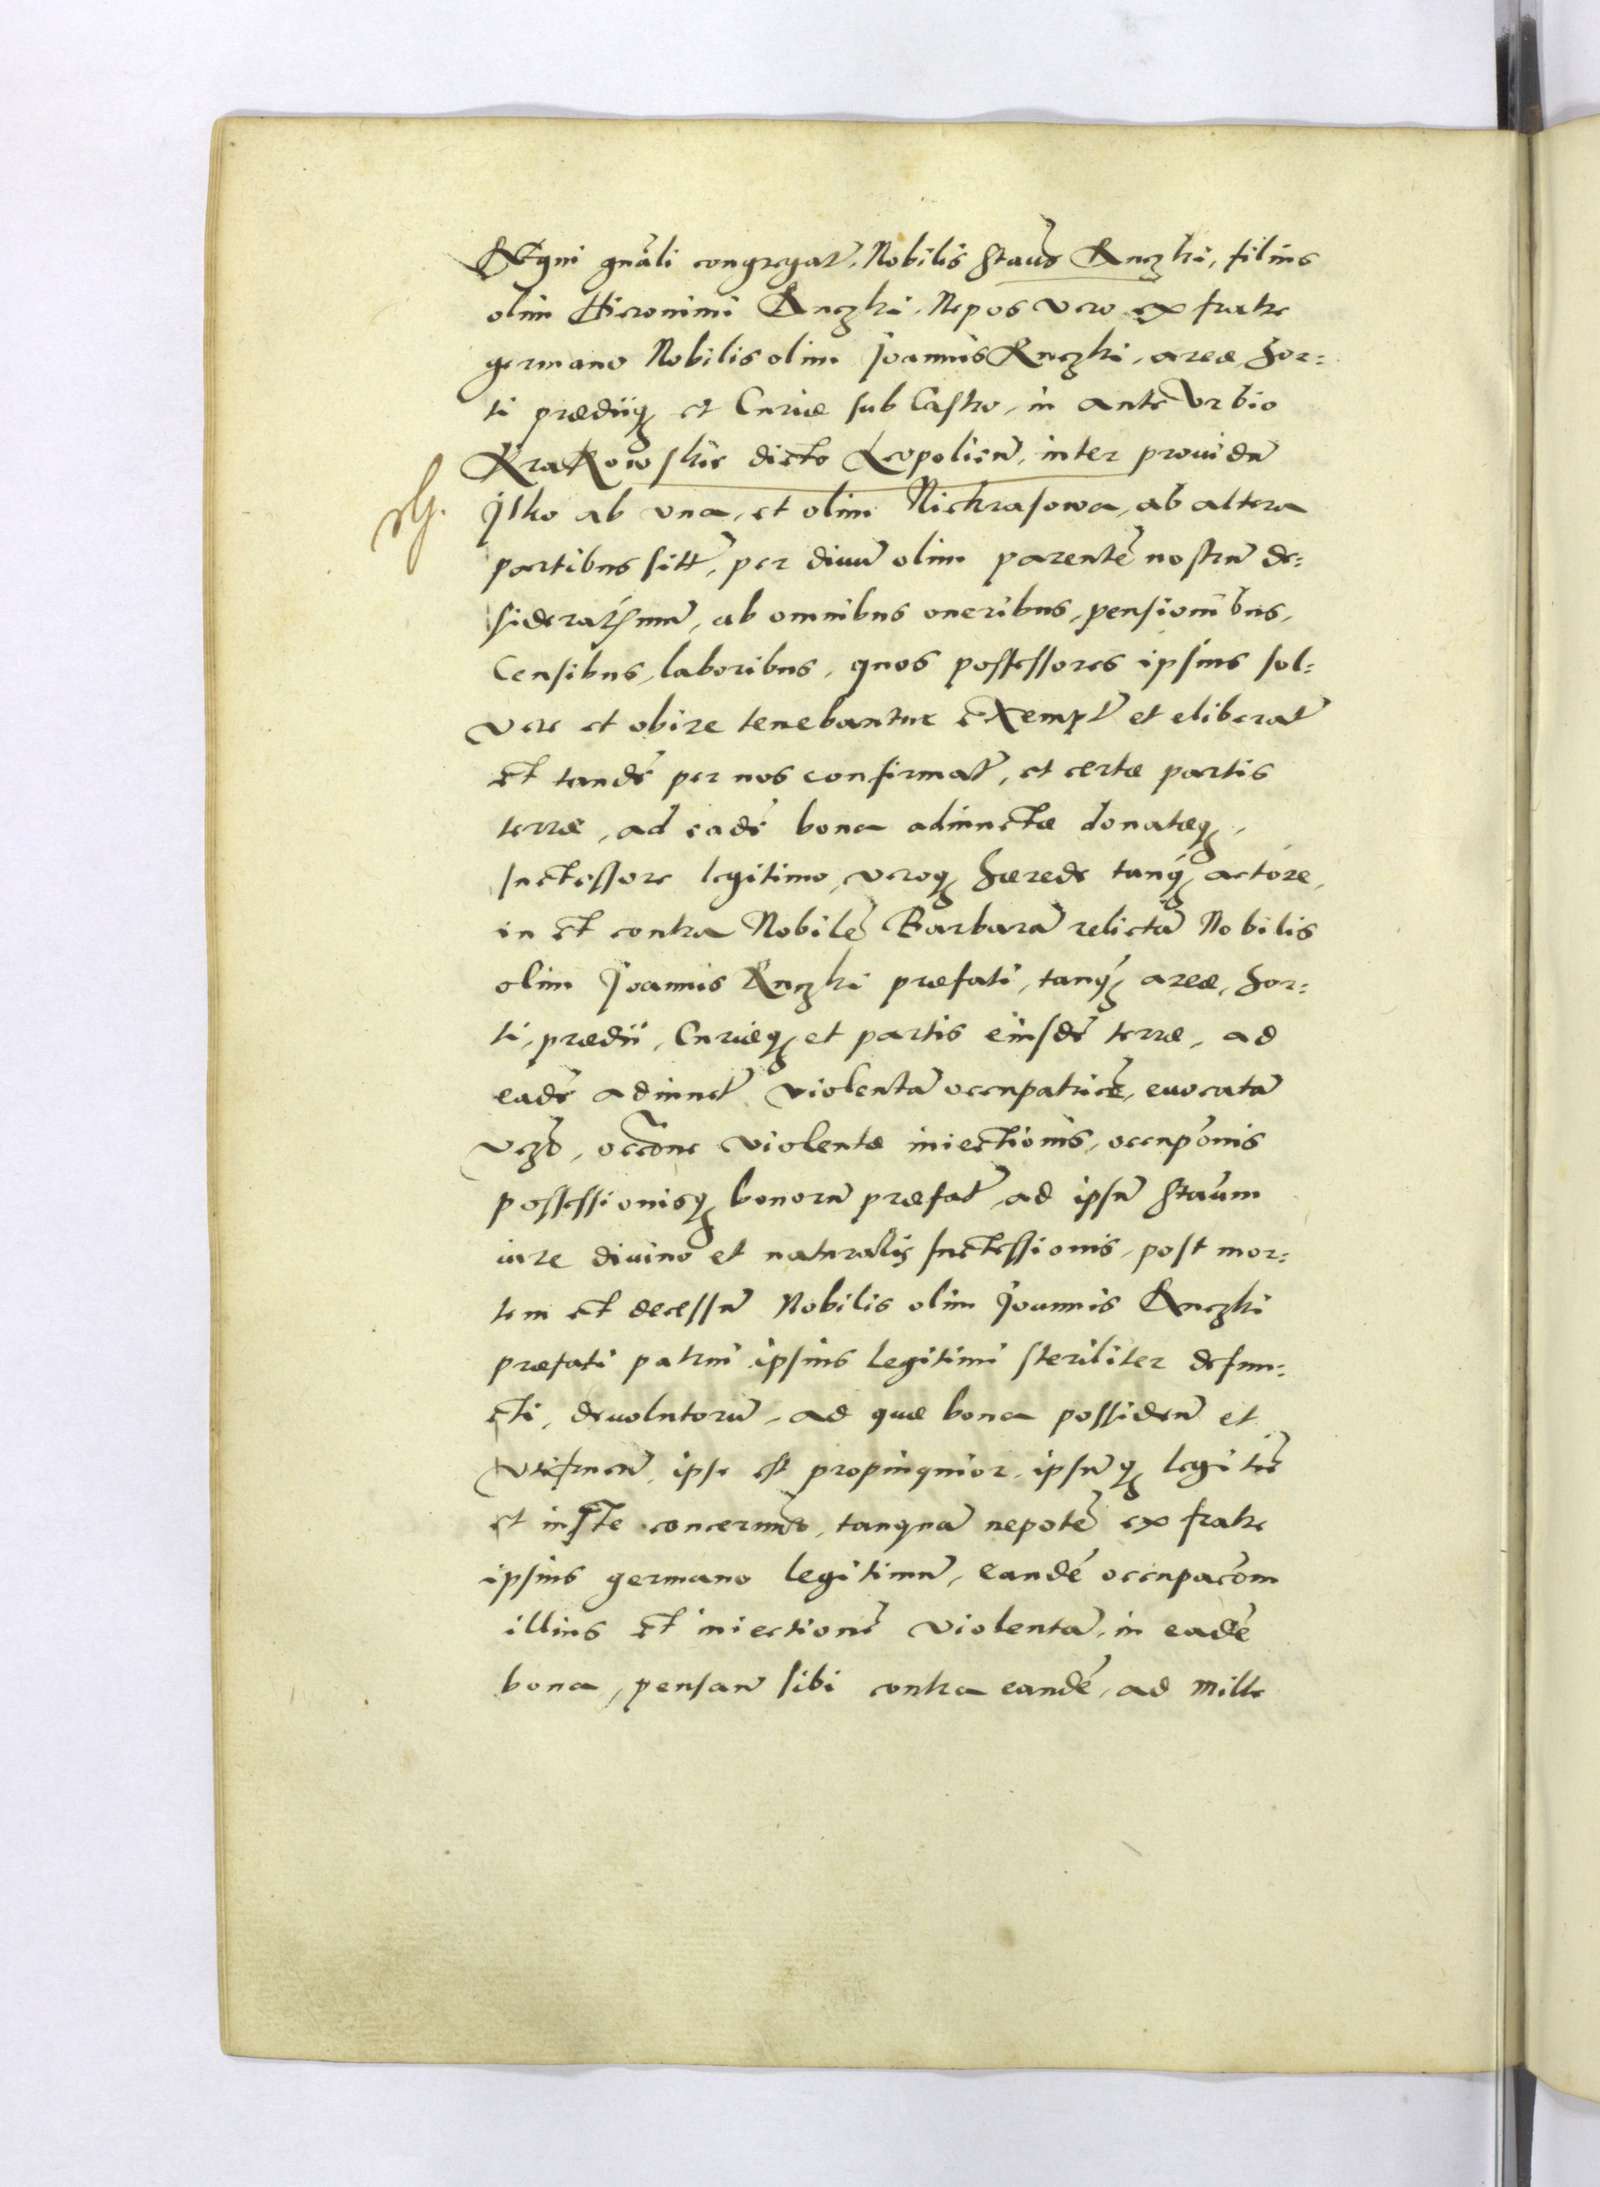 Regni gnāli congregat. Nobilis Staūs Ruczki, filius
olim Hieronimi Ruczki, Nepos vero ex fratre
germano Nobilis olim Joannis Ruczki, areæ, hor:
ti prædiiq et Curiæ sub Castro, in ante Vrbio
Krakowskie dicto Leopolien̄, inter prouidū
Jsko ab vna, et olim Nickrasowa, ab altera
partibus sitt, per diuū olim parentē nostrū de:
sideratissimū, ab omnibus oneribus, pensionibus,
Censibus, laboribus, quos possessores ipsius sol:
vere et obire tenebantur exempt et eliberat
et tandē per nos confirmat, et certæ partis
terræ, ad eadē bona adiunctæ donatæq,
successore legitimo, veroq hærede tanq̄ actore,
in et contra Nobilē Barbarā relictā Nobilis
olim Joannis Ruczki præfati, tanq̄ areæ, hor:
ti, prædii, Curiæq et partis eiusdē terræ, ad
eadē adiunct violentā occupatricē, euocatā
occōne violentæ iniectionis, occupōnis
possessionisq bonorū præfat ad ipsū Staūm
iure diuino et naturalis successionis, post mor:
tem et decessū Nobilis olim Joannis Ruczki
præfati patrui ipsius legitimi steriliter defun:
cti, deuolutorū, ad quæ bona possidenā et
vtifruenā, ipse est propinquior, ipsūq legitīe
et iuste concernūt, tanquā nepotē ex fratre
ipsius germano legitimū, eandē occupacōm
illius et iniectionē violentā, in eadē
bona, pensan̄ sibi contra eandē, ad mille